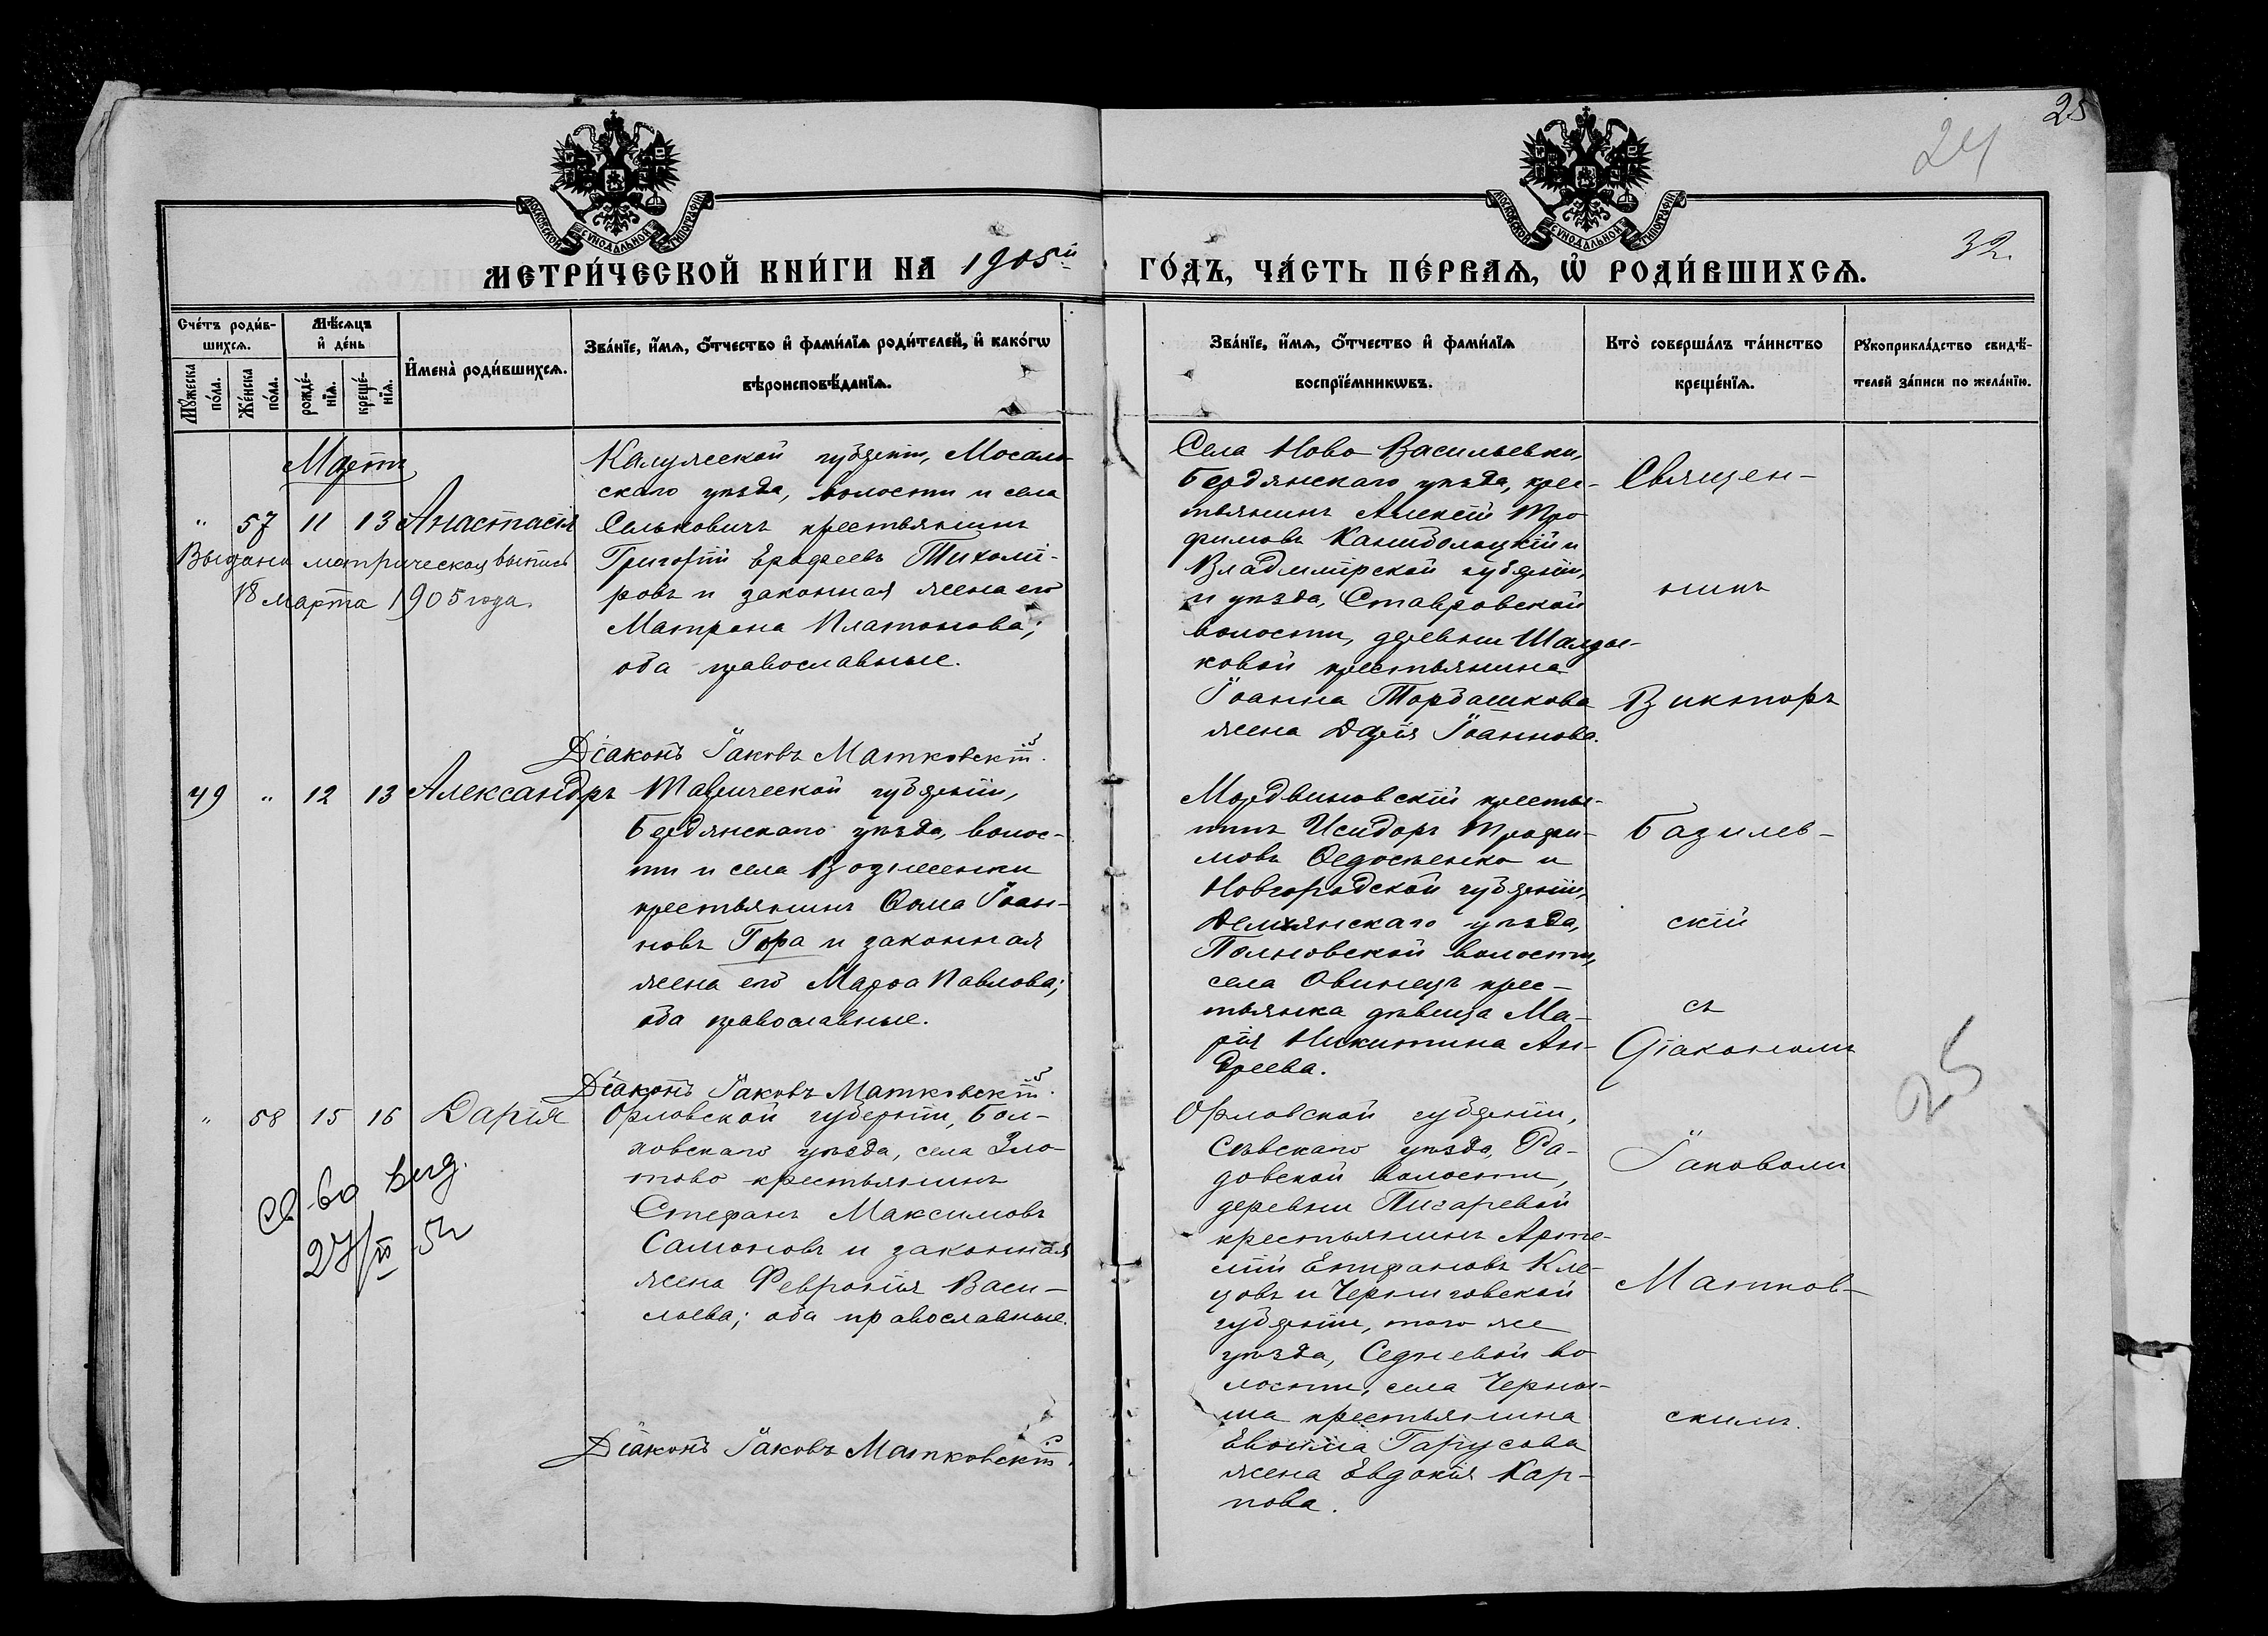 25
24
32.
МОСКОВСКОЙ СѴНОДАЛЬНОЙ ТИПОГРАФІИ
МОСКОВСКОЙ СѴНОДАЛЬНОЙ ТИПОГРАФІИ
МЕТРИ́ЧЕСКОЙ КНИ́ГИ НА 1905й
ГО́ДЪ, ЧА́СТЬ ПЕ́РВАѦ, Ѡ҆ РОДИ́ВШИХСѦ.
Сче́тъ роди́в-
шихсѧ.
Мꙋ́жеска по́ла.
Же́нска по́ла.
Мѣ́сѧцъ
и҆ де́нь
рожде́-
нїѧ.
креще́-
нїѧ.
И҆мена̀ роди́вшихсѧ.
Зва́нїе, и҆́мѧ, ѻ҆́тчество и҆ фами́лїѧ роди́телей, и҆ како́гѡ
вѣроисповѣ́данїѧ.
Зва́нїе, и҆́мѧ, ѻ҆́тчество и҆ фами́лїѧ
воспрїе́мникѡвъ.
Кто̀ соверша́лъ та́инство
креще́нїѧ.
Рꙋкоприкла́дство свидѣ́-
телей за́писи по жела́нїю.
Мартъ
" 57 11 13 Анастасія
Выдана метрическая выпись
18 марта 1905 года.
Калужской губерніи, Мосаль-
скаго уѣзда, волости и села
Сельковичъ крестьянинъ
Григорій Ерофеевъ Тихомі-
ровъ и законная жена его
Матрона Платонова;
оба православные.
Діаконъ Іаковъ Матковскій.
Села Ново Васильевки,
Бердянскаго уѣзда, крес-
тьянинъ Алексій Тро
фимовъ Канивольцкій и
Владимірской губерніи,
и уѣзда, Ставровской
волости, деревни Шалды-
ковой крестьянина
Іоанна Торбашкова
жена Дарія Іоаннова.
Священ-
никъ
Викторъ
49 " 12 13 Александръ
Таврической губерніи,
Бердянскаго уѣзда, волос-
ти и села Вознесенки
крестьянинъ Ѳома Іоан-
новъ Гора и законная
жена его Марѳа Павлова;
оба православные.
Діаконъ Іаковъ Матковскій.
Мордвиновскій кресть-
нинъ Исидоръ Трофи-
мовъ Ѳедосѣенко и
Новгородской губерніи,
Демянскаго уѣзда,
Полновской волости,
села Овинецъ крес-
тьянка дѣвица Ма-
рія Никитина Ан-
дреева.
Базилев-
скій
съ
Діакономъ
25
" 58 15 16 Дарія
Св-во выд.
27/III 5 г
Орловской губерніи, Бол-
ховскаго уѣзда, села Зло-
тово крестьянинъ
Стефанъ Максимовъ
Самоновъ и законная
жена Февронія Васи-
льева; оба православные.
Діаконъ Іаковъ Матковскій.
Орловской губерніи,
Сѣвскаго уѣзда, Ра-
довской волости,
деревни Писаревой
крестьянинъ Арте-
мій Епифановъ Кле-
цовъ и Черниговской
губерніи, того же
уѣзда, Седневой во
лости, села Черны-
ша крестьянина
Евѳима Гарусова
жена Евдокія Кар-
пова.
Іаковомъ
Матков-
скимъ.